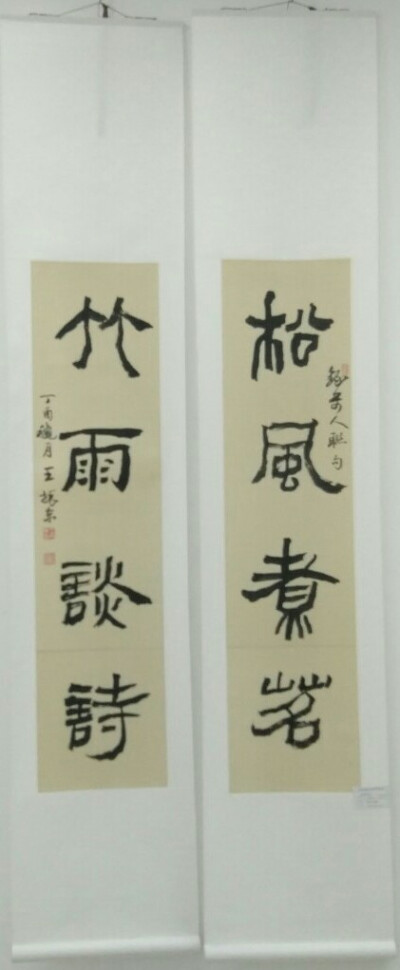 松風煮茗
錄昔人聯句
竹雨談詩
丁酉穐月王振東